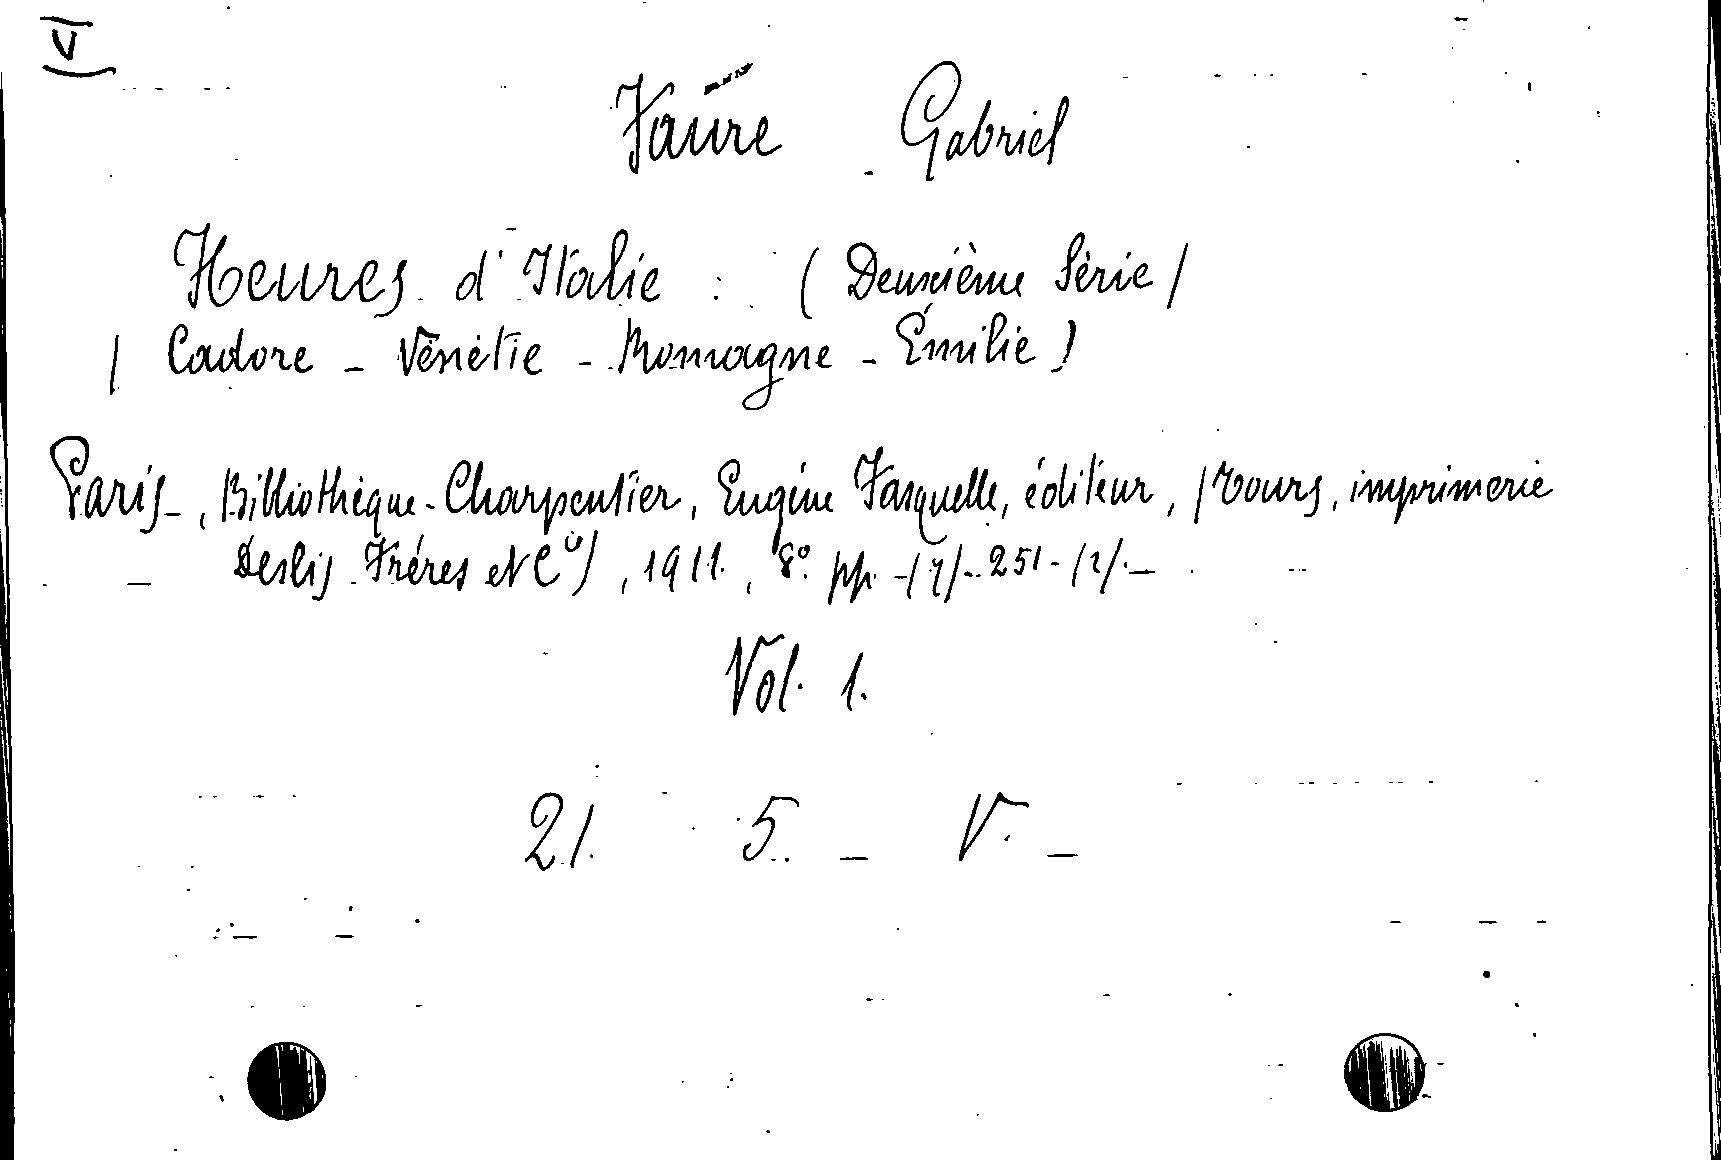 V
Faure Gabriel
Heures d'Italie : ( Deuxième Série /
/ Cadore - Vénétie - Romagne - Émilie )
Paris -, Bibliothèque-Charpentier, Eugène Fasquelle, éditeur, / Tours, imprimerie
Deslis Frères et Cie ) , 1911. , 8º. pp. -/7/-251-/2/.-
Vol. 1.
21. 5. - V. -